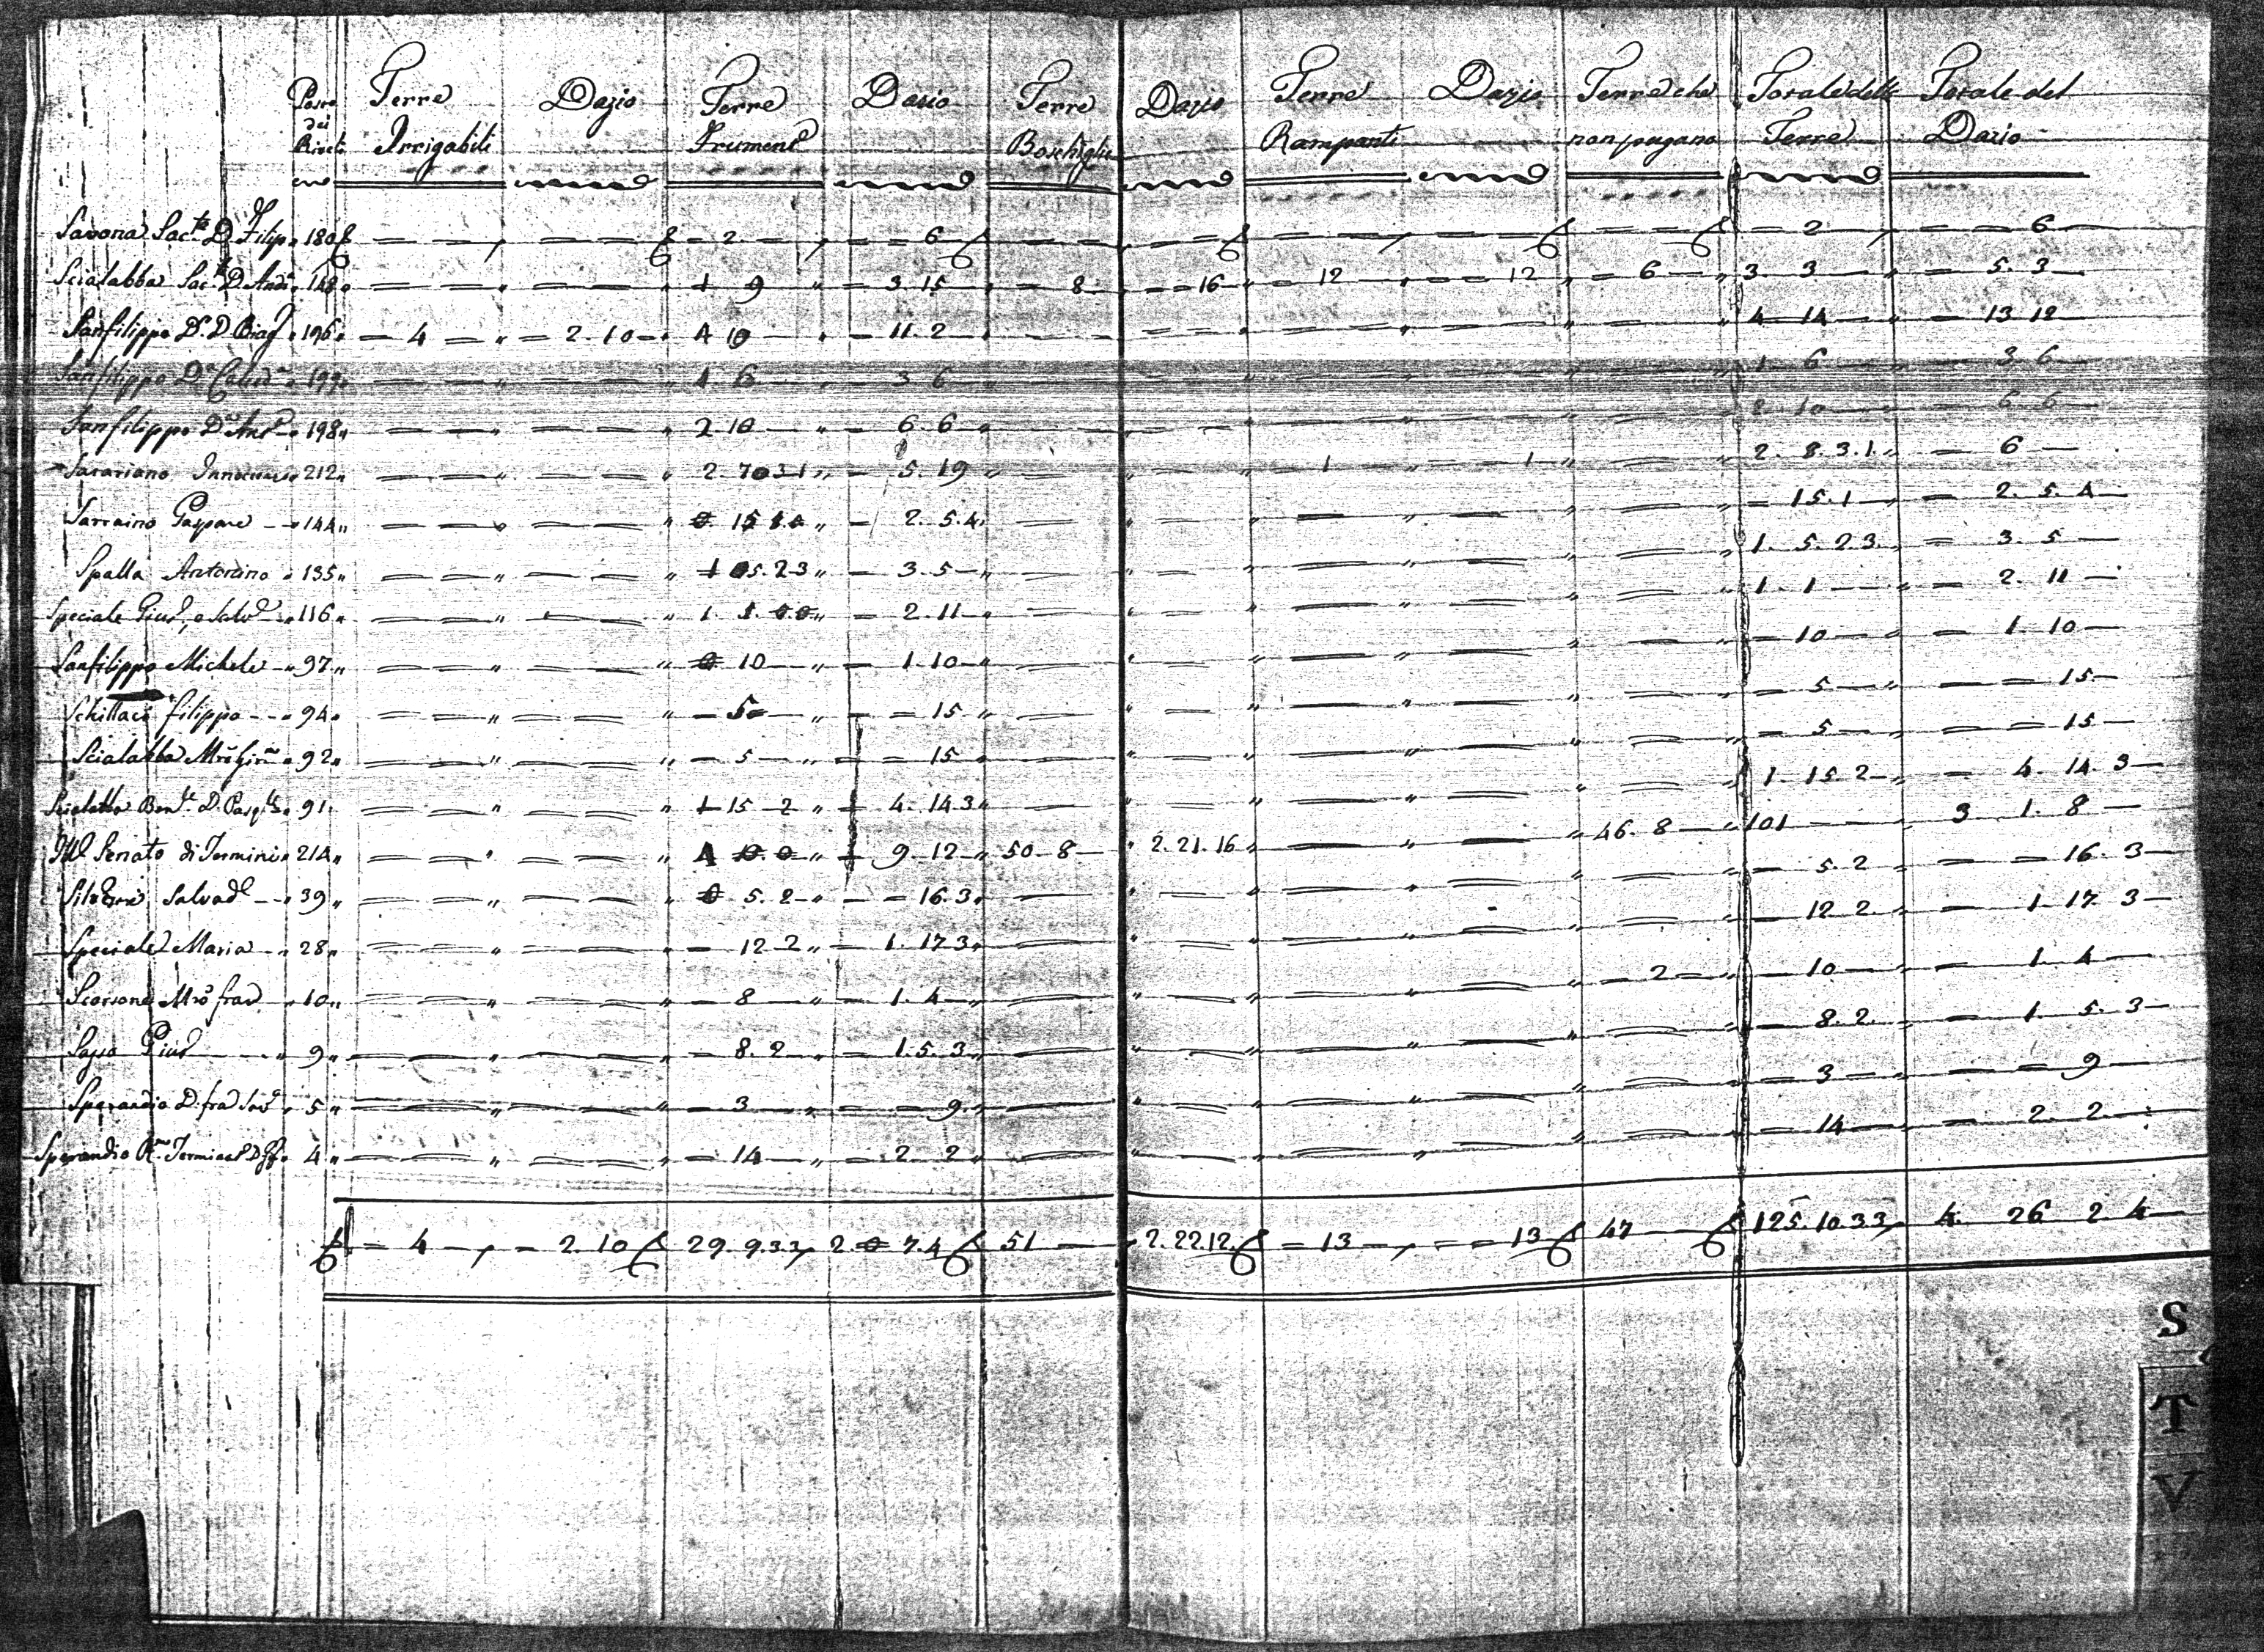 Posto dei Riveli Terre Irrigabili Dazio Terre Frument.e Dazio Terre Boschiglie Dazio Terre Rampanti Dazio Terre che non pagano Totale delle Terre Totale del Dazio
Savona Sac.te D. Filip. 180 — — — — — 2 — — — 6 — — — — — — — — — — — 2 — — 6
Scialabba Sac. D. And. 148 — — — — 1 9 — 3 15 — 8 — — 16 — 12 — — 12 — 6 — 3. 3 — — 5. 3
Sanfilippo D.r D. Biag. 196 — 4 — — 2. 10 4 10 — — 11. 2 — — — — — — — 4 14 — — 13 12
Sanfilippo D. 199 — — — — 1 6 — 3 6 — — — — — — — 1 6 — — 3 6
Sanfilippo D. Ant. 198 — — — — 2. 10 — — 6 6 — — — — — — — 2 10 — — 6 6
212 — — — — 2 7 0 3 1 — 5. 19 — — — — 1 — — 1 — — 2. 8. 3. 1. — 6 —
Sarraino Gaspare 144 — — — — 15 1 — 2. 5. 4. — — — — — — — — 15. 1 — 2. 5. 4
Spalla Antonino 135 — — — — 1 5. 2 3 — 3. 5 — — — — — — — — 1. 5. 2 3. — 3. 5 —
Speciale Gius.e e Salv.e 116 — — — — 1. 1. 0. 0 — 2. 11 — — — — — — — — 1. 1 — — 2. 11 —
Sanfilippo Michele 97 — — — — 0 10 — — 1. 10 — — — — — — — — 10 — — 1. 10 —
Schittaci Filippo 94 — — — — — 5 — — — 15 — — — — — — — — 5 — — — 15 —
Scialabba M.ro 92 — — — — — 5 — — — 15 — — — — — — — — 5 — — — 15 —
Scialabba Ben. D. 91 — — — — 1 15 2 — 4. 14 3 — — — — — — — 1. 15. 2 — 4. 14. 3 —
Ill. Senato di Termini 214 — — — — 4 10. 0 — 9. 12 50. 8 — 2. 21. 16 — — — 46. 8 — 101 — 3 1. 8 —
Salvad.e 39 — — — — 0 5. 2 — — 16. 3 — — — — — — — — 5. 2 — — 16. 3 —
Speciale Maria 28 — — — — — 12 2 — 1. 17 3 — — — — — — — — 12 2. — 1. 17 3 —
Scorsone M.ro Fra. 10 — — — — — 8 — — 1. 4 — — — — — — — 2 — — 10 — — 1. 4 —
9 — — — — — 8. 2 — 1. 5. 3 — — — — — — — — 8. 2. — 1. 5. 3 —
Sperandio D. Fra. 5 — — — — — 3 — — — 9. — — — — — — — — 3 — — — 9 —
Sperandio 4 — — — — — 14 — — 2 2 — — — — — — — — 14 — — 2. 2 —
— 4 — — 2. 10 29. 9. 3 3 2. 0 7. 4 51 — 2. 22. 12. — 13 — — — 13 47 — 125. 10 3 3 4. 26 2 4 —
S
T
V